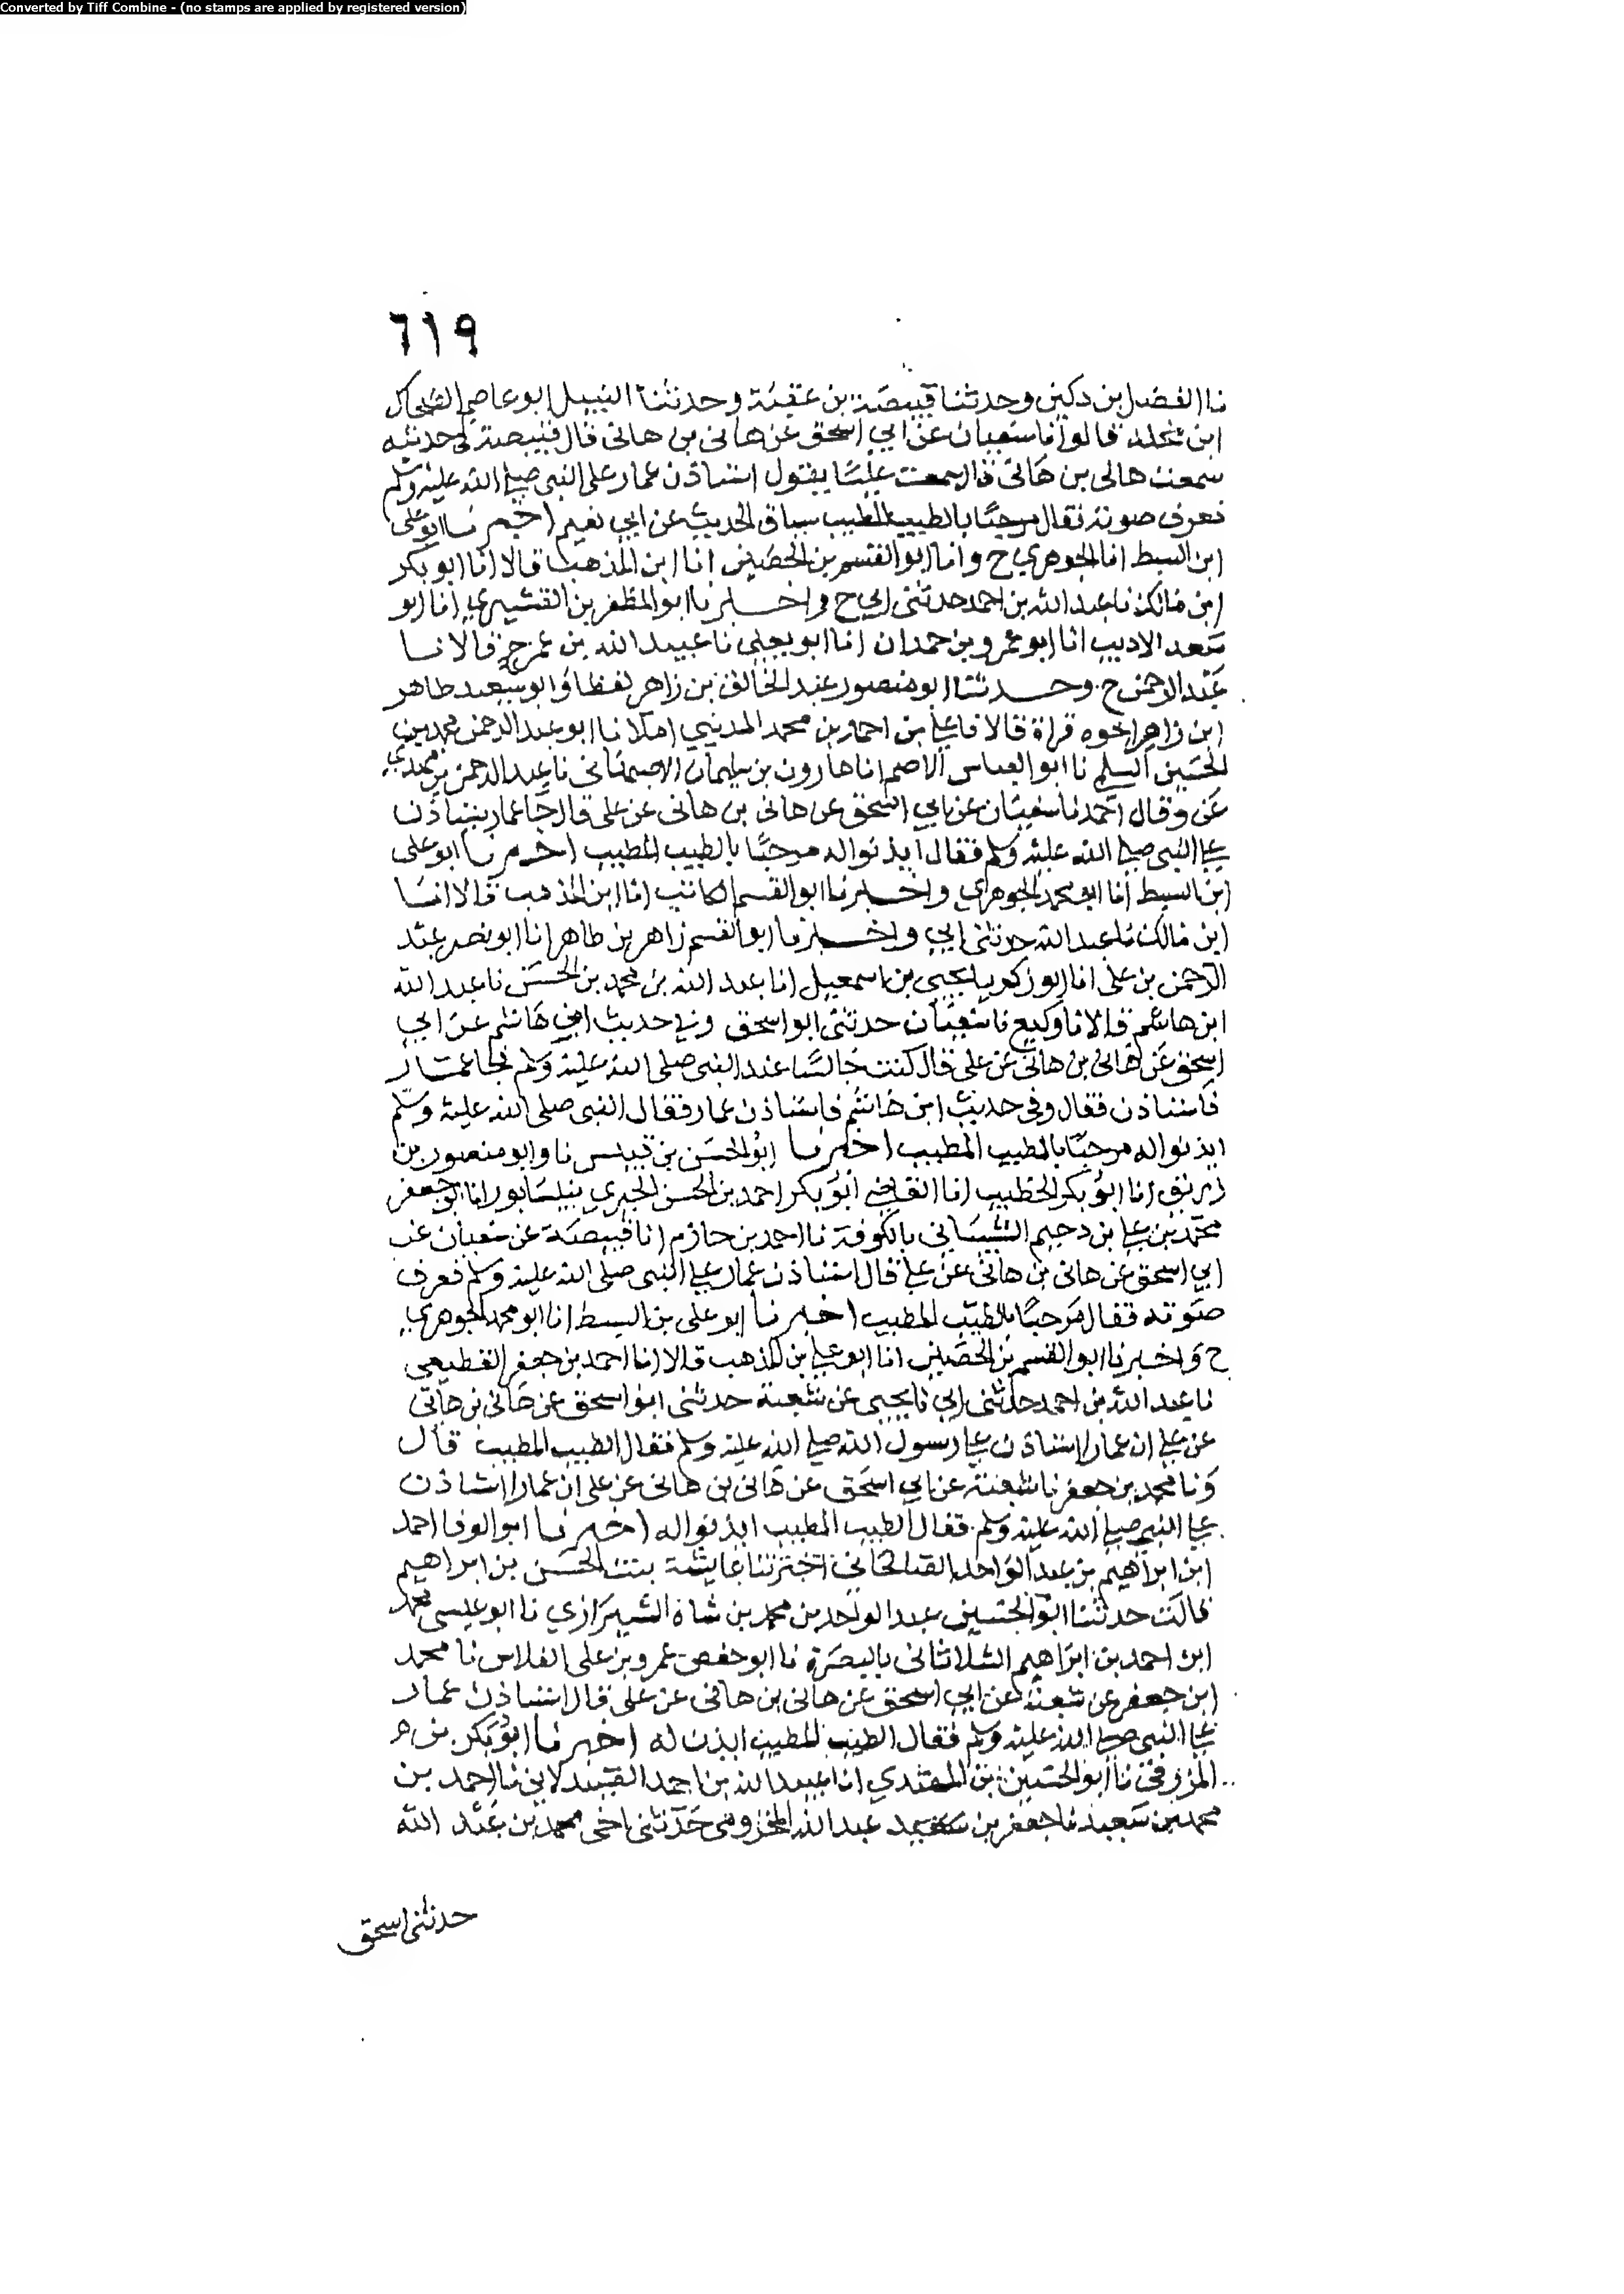 Converted by Tiff Combine - (no stamps are applied by registered version)
٦١٩
نا الفضل بن دكين وحدثنا قبيصة بن عقبة وحدثنا النبيل ابو عاصم الضحاك
ابن مخلد قالوا نا سفيان عن ابي اسحق عن هانى بن هانى قال قبيصة في حديثه
سمعت هانى بن هانى قال سمعت عليا يقول استاذن عمار على النبي صلى الله عليه وسلم
فعرف صوته فقال مرحبا بالطيب المطيب سياق الحديث عن ابي نعيم اخبرنا ابو علي
ابن السبط انا الجوهري ح وانا ابو القسم بن الحصين انا ابن المذهب قالا انا ابو بكر
ابن مالك نا عبد الله بن احمد حدثني ابي ح واخبرنا ابو المظفر بن القشيري انا ابو
سعد الاديب انا ابو عمرو بن حمدان انا ابو يعلى نا عبيد الله بن عمر ح قالا نا
عبد الرحمن ح وحدثنا ابو منصور عبد الخالق بن زاهر لفظا وابو سعيد طاهر
ابن زاهر اخوه قراة قالا نا علي بن احمد بن محمد المديني املا نا ابو عبد الرحمن محمد بن
الحسين السلمي نا ابو العباس الاصم نا هارون بن سليمان الاصبهاني نا عبد الرحمن بن مهدي
عن وقال احمد نا سفيان عن ابي اسحق عن هانى بن هانى عن علي قال جا عمار يستاذن
على النبي صلى الله عليه وسلم فقال ايذنوا له مرحبا بالطيب المطيب اخبرنا ابو علي
ابن السبط انا ابو محمد الجوهري واخبرنا ابو القسم الكاتب انا ابن المذهب قالا انا
ابن مالك نا عبد الله حدثني ابي واخبرنا ابو القسم زاهر بن طاهر انا ابو نصر عبد
الرحمن بن علي انا ابو زكريا يحيى بن اسمعيل انا عبد الله بن محمد بن الحسن نا عبد الله
ابن هاشم قالا نا وكيع نا سفيان حدثني ابو اسحق وفي حديث ابن هاشم عن ابي
اسحق عن هانى بن هانى عن علي قال كنت جالسا عند النبي صلى الله عليه وسلم فجا عمار
فاستاذن فقال وفي حديث ابن هاشم فاستاذن عمار فقال النبي صلى الله عليه وسلم
ايذنوا له مرحبا بالطيب المطيب اخبرنا ابو الحسن بن قبيس نا وابو منصور بن
زريق انا ابو بكر الخطيب انا القاضي ابو بكر احمد بن الحسن الحيري بنيسابور انا ابو جعفر
محمد بن علي بن دحيم الشيباني بالكوفة نا احمد بن حازم انا قبيصة عن سفيان عن
ابي اسحق عن هانى بن هانى عن علي قال استاذن عمار على النبي صلى الله عليه وسلم فعرف
صوته فقال مرحبا بالطيب المطيب اخبرنا ابو علي بن السبط انا ابو محمد الجوهري
ح واخبرنا ابو القسم بن الحصين انا ابو علي بن المذهب قالا انا احمد بن جعفر القطيعي
نا عبد الله بن احمد حدثني ابي نا يحيى عن شعبة حدثني ابو اسحق عن هانى بن هانى
عن علي ان عمارا استاذن على رسول الله صلى الله عليه وسلم فقال الطيب المطيب قال
ونا محمد بن جعفر نا شعبة عن ابي اسحق عن هانى بن هانى عن علي ان عمارا استاذن
على النبي صلى الله عليه وسلم فقال الطيب المطيب ايذنوا له اخبرنا ابو الوفا احمد
ابن ابراهيم بن عبد الواحد الصالحاني اخبرتنا عايشة بنت الحسن بن ابراهيم
قالت حدثنا ابو الحسين عبد الواحد بن محمد بن شاه الشيرازي نا ابو عيسى محمد
ابن احمد بن ابراهيم الثلاثاني بالبصرة نا ابو حفص عمرو بن علي الفلاس نا محمد
ابن جعفر عن شعبة عن ابي اسحق عن هانى بن هانى عن علي قال استاذن عمار
على النبي صلى الله عليه وسلم فقال الطيب المطيب ايذن له اخبرنا ابو بكر بن
المزرفي نا ابو الحسين بن المهتدي انا عبيد الله بن احمد الصيدلاني نا احمد بن
محمد بن سعيد نا جعفر بن عبد الله المخزومي حدثني اخي محمد بن عبد الله
حدثني اسحق